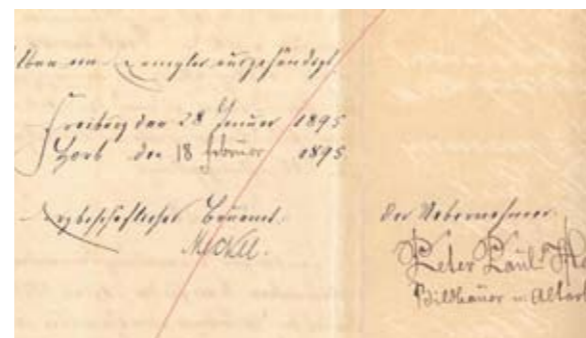 ein Exemplar ausgehändigt
Freiburg den 28 Januar 1895
Horb den 18 Februar 1895
Erzbischöfliches Bauamt.
Meckel.
Der Uebernehmer
Peter Paul
Bildhauer u. Altarb